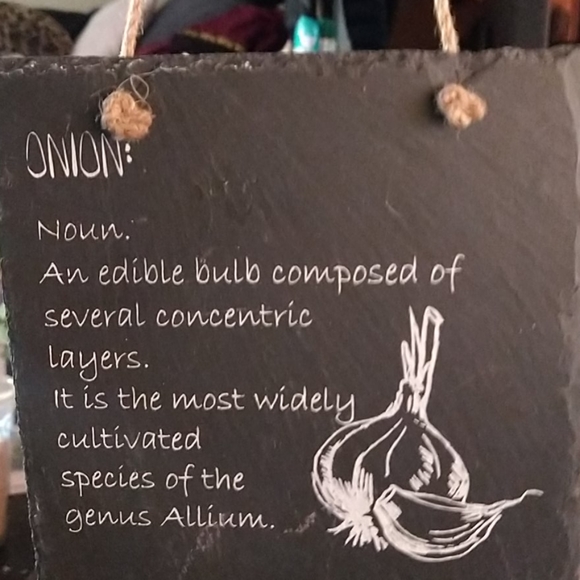 ONION:
Noun.
An edible bulb composed of
several concentric
layers.
It is the most widely
cultivated
species of the
genus Allium.